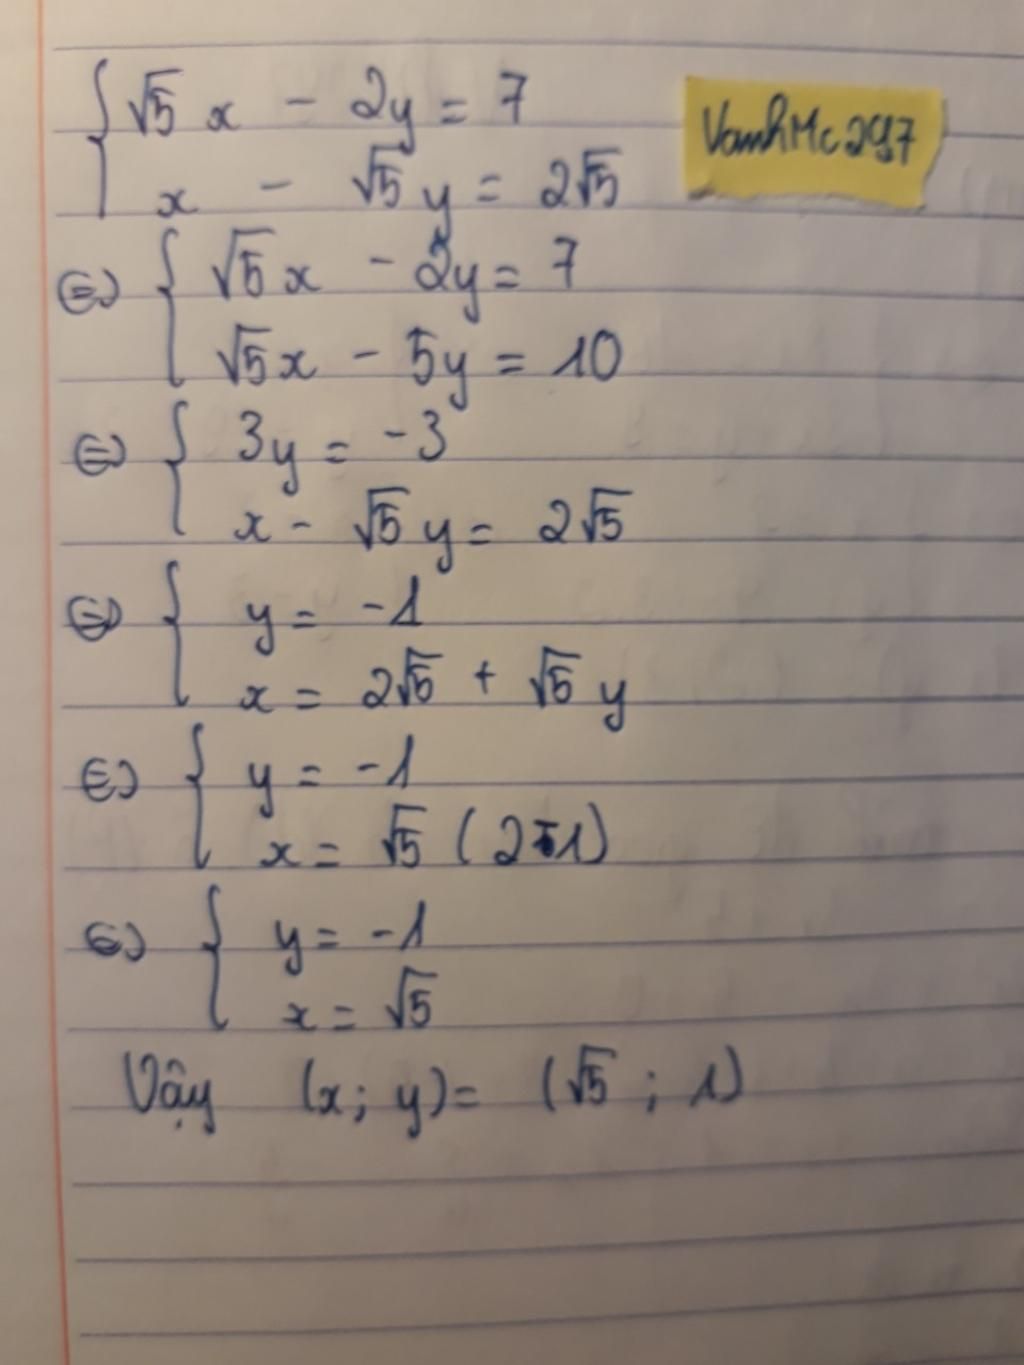 { √5 x - 2y = 7
VanhMc297
x - √5 y = 2√5
⇔ { √5 x - 2y = 7
√5 x - 5y = 10
⇔ { 3y = -3
x - √5 y = 2√5
⇔ { y = -1
x = 2√5 + √5 y
⇔ { y = -1
x = √5 (2-1)
⇔ { y = -1
x = √5
Vậy (x; y) = (√5 ; 1)